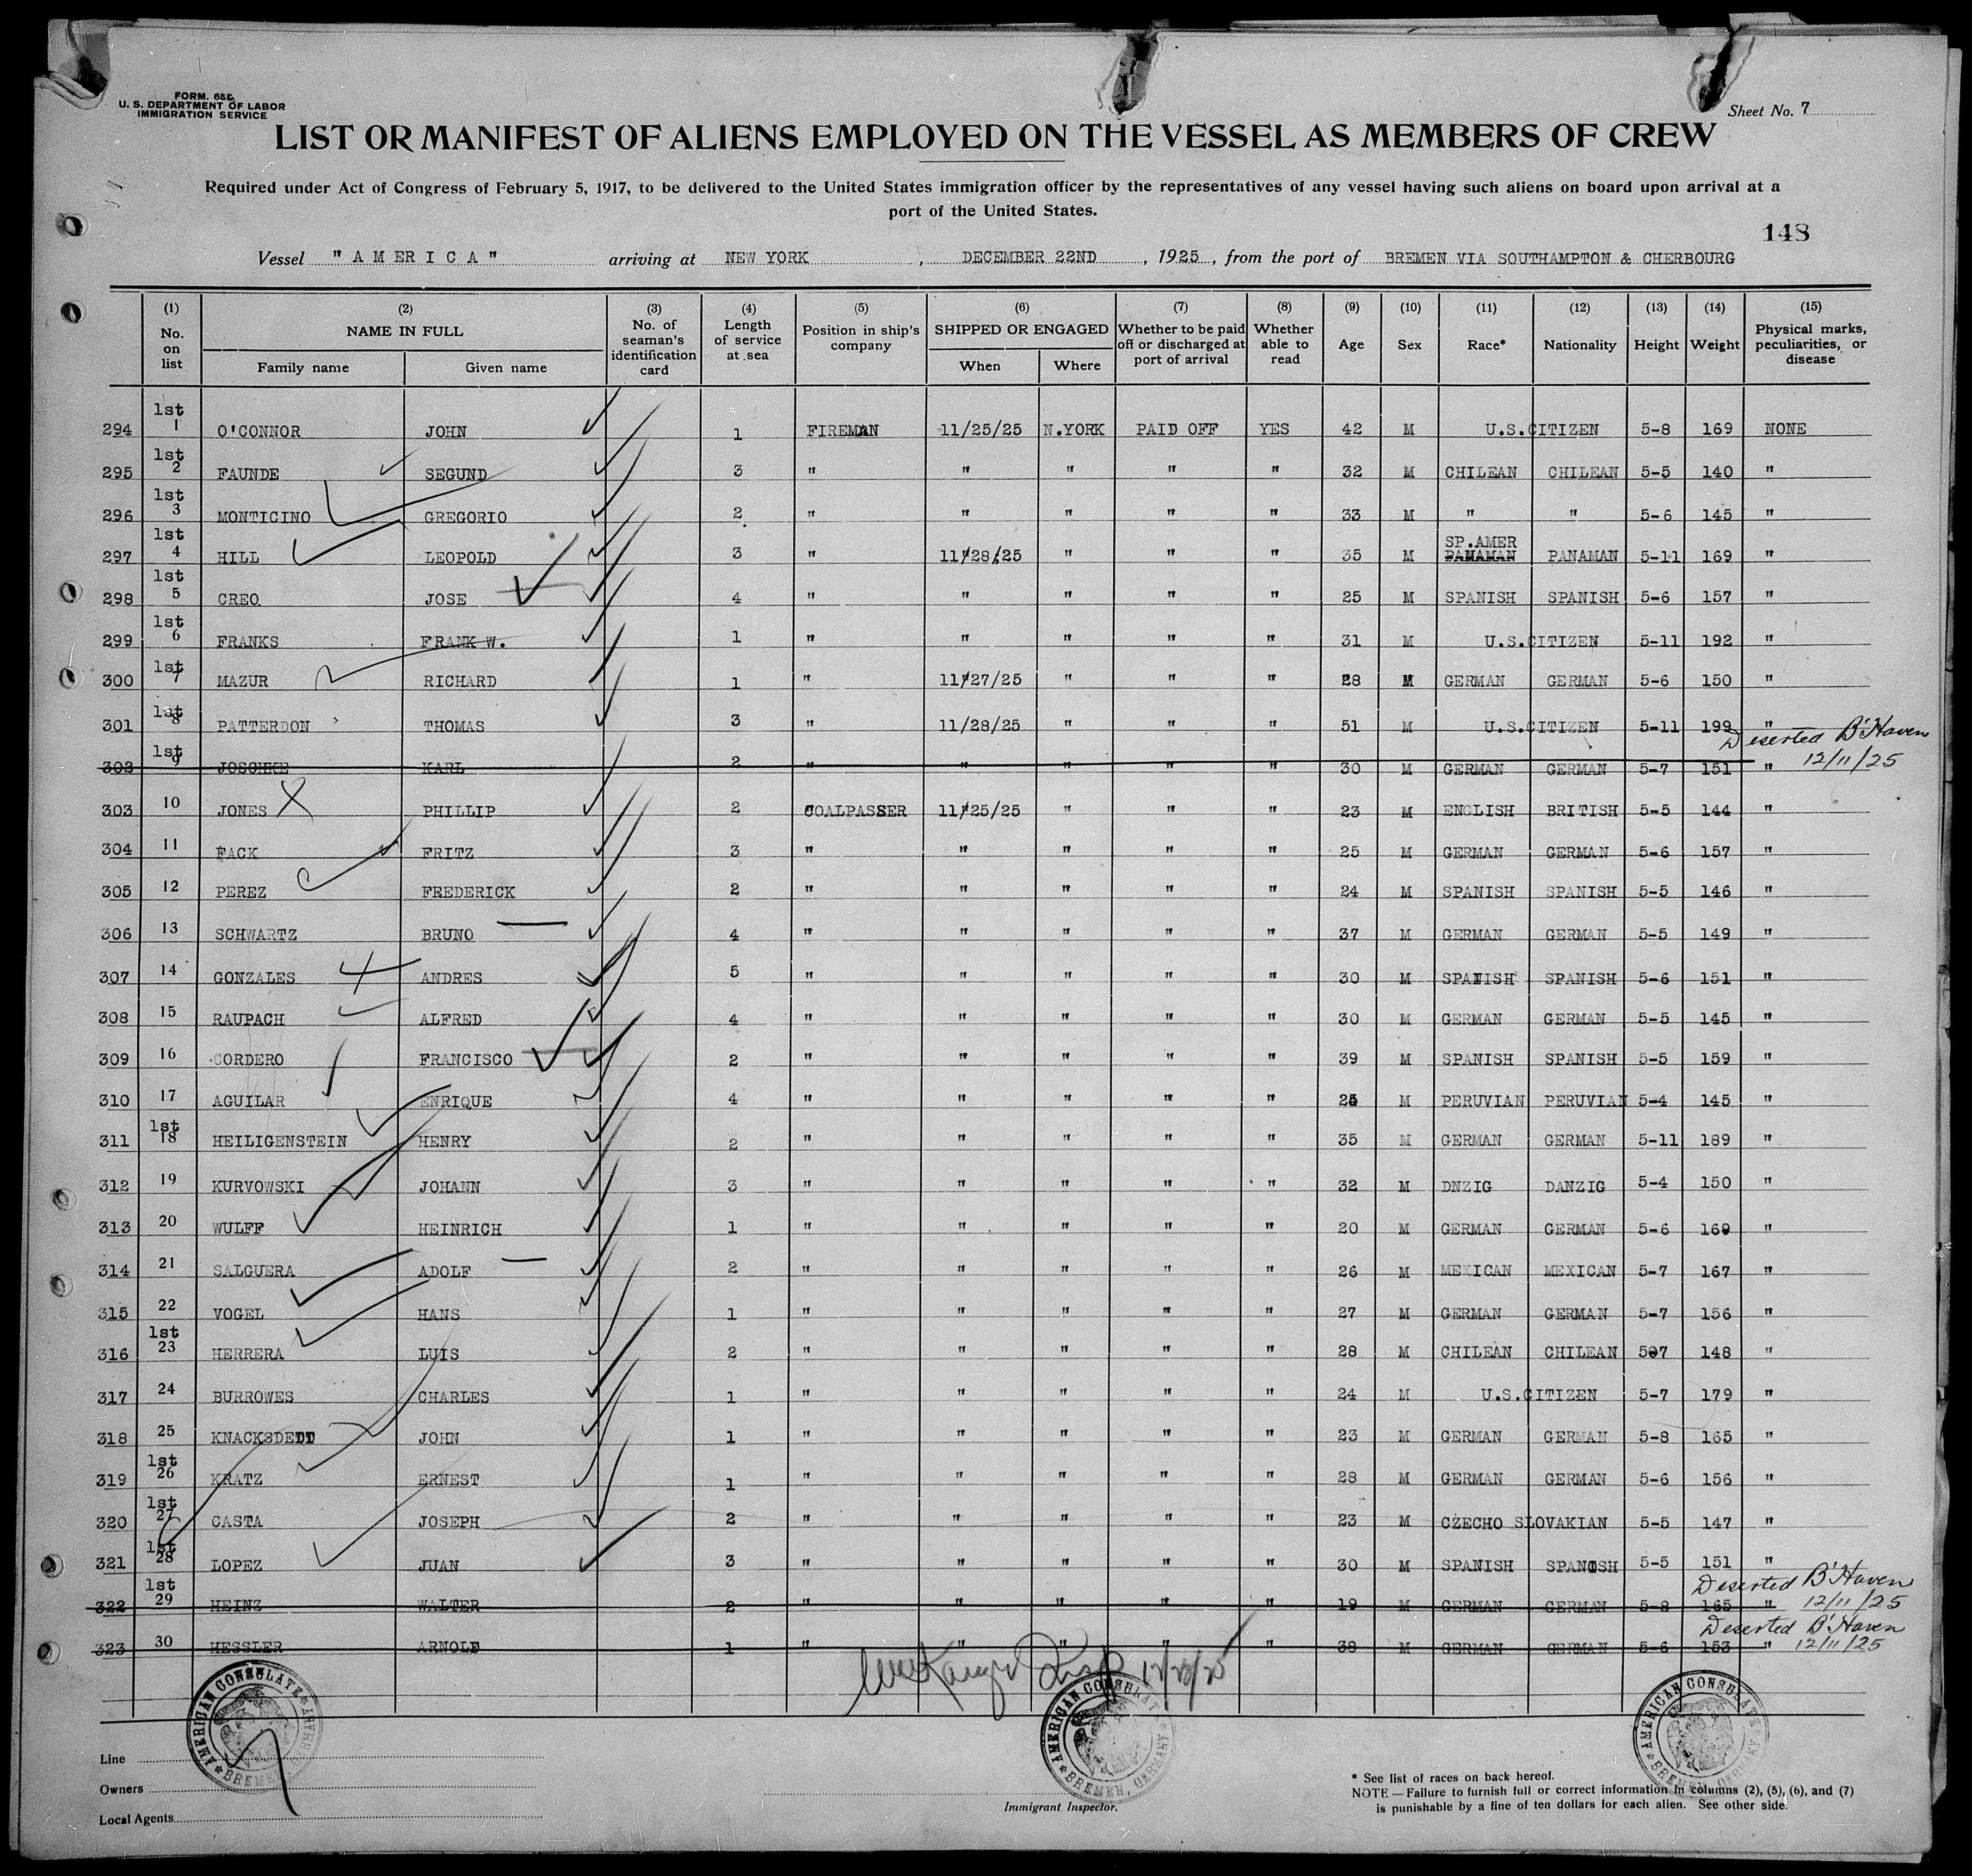 FORM. 68E
U. S. DEPARTMENT OF LABOR
IMMIGRATION SERVICE
Sheet No. 7
LIST OR MANIFEST OF ALIENS EMPLOYED ON THE VESSEL AS MEMBERS OF CREW
Required under Act of Congress of February 5, 1917, to be delivered to the United States immigration officer by the representatives of any vessel having such aliens on board upon arrival at a
port of the United States.
148
Vessel "AMERICA" arriving at NEW YORK, DECEMBER 22ND, 1925, from the port of BREMEN VIA SOUTHAMPTON & CHERBOURG
(1) No. on list (2) NAME IN FULL Family name Given name (3) No. of seaman's identification card (4) Length of service at sea (5) Position in ship's company (6) SHIPPED OR ENGAGED When Where (7) Whether to be paid off or discharged at port of arrival (8) Whether able to read (9) Age (10) Sex (11) Race* (12) Nationality (13) Height (14) Weight (15) Physical marks, peculiarities, or disease
294 1st 1 O'CONNOR JOHN 1 FIREMAN 11/25/25 N.YORK PAID OFF YES 42 M U.S.CITIZEN 5-8 169 NONE
295 1st 2 FAUNDE SEGUND 3 " " " " " 32 M CHILEAN CHILEAN 5-5 140 "
296 1st 3 MONTICINO GREGORIO 2 " " " " " 33 M " " 5-6 145 "
297 1st 4 HILL LEOPOLD 3 " 11/28/25 " " " 35 M SP.AMER PANAMAN PANAMAN 5-11 169 "
298 1st 5 CREO JOSE 4 " " " " " 25 M SPANISH SPANISH 5-6 157 "
299 1st 6 FRANKS FRANK W. 1 " " " " " 31 M U.S.CITIZEN 5-11 192 "
300 1st 7 MAZUR RICHARD 1 " 11/27/25 " " " 28 M GERMAN GERMAN 5-6 150 "
301 1st 8 PATTERDON THOMAS 3 " 11/28/25 " " " 51 M U.S.CITIZEN 5-11 199 "
302 1st 9 JOSCHKE KARL 2 " " " " " 30 M GERMAN GERMAN 5-7 151 " Deserted B'Haven 12/11/25
303 10 JONES PHILLIP 2 COALPASSER 11/25/25 " " " 23 M ENGLISH BRITISH 5-5 144 "
304 11 FACK FRITZ 3 " " " " " 25 M GERMAN GERMAN 5-6 157 "
305 12 PEREZ FREDERICK 2 " " " " " 24 M SPANISH SPANISH 5-5 146 "
306 13 SCHWARTZ BRUNO 4 " " " " " 37 M GERMAN GERMAN 5-5 149 "
307 14 GONZALES ANDRES 5 " " " " " 30 M SPANISH SPANISH 5-6 151 "
308 15 RAUPACH ALFRED 4 " " " " " 30 M GERMAN GERMAN 5-5 145 "
309 16 CORDERO FRANCISCO 2 " " " " " 39 M SPANISH SPANISH 5-5 159 "
310 17 AGUILAR ENRIQUE 4 " " " " " M PERUVIAN PERUVIAN 5-4 145 "
311 1st 18 HEILIGENSTEIN HENRY 2 " " " " " 35 M GERMAN GERMAN 5-11 189 "
312 19 KURVOWSKI JOHANN 3 " " " " " 32 M DNZIG DANZIG 5-4 150 "
313 20 WULFF HEINRICH 1 " " " " " 20 M GERMAN GERMAN 5-6 169 "
314 21 SALGUERA ADOLF 2 " " " " " 26 M MEXICAN MEXICAN 5-7 167 "
315 22 VOGEL HANS 1 " " " " " 27 M GERMAN GERMAN 5-7 156 "
316 1st 23 HERRERA LUIS 2 " " " " " 28 M CHILEAN CHILEAN 5-7 148 "
317 24 BURROWES CHARLES 1 " " " " " 24 M U.S.CITIZEN 5-7 179 "
318 25 KNACKSDEDT JOHN 1 " " " " " 23 M GERMAN GERMAN 5-8 165 "
319 1st 26 KRATZ ERNEST 1 " " " " " 28 M GERMAN GERMAN 5-6 156 "
320 1st 27 CASTA JOSEPH 2 " " " " " 23 M CZECHO SLOVAKIAN 5-5 147 "
321 1st 28 LOPEZ JUAN 3 " " " " " 30 M SPANISH SPANISH 5-5 151 "
322 1st 29 HEINZ WALTER 2 " " " " " 19 M GERMAN GERMAN 5-8 165 " Deserted B'Haven 12/11/25
323 30 HESSLER ARNOLD 1 " " " " " 38 M GERMAN GERMAN 5-6 153 " Deserted B'Haven 12/11/25
AMERICAN CONSULATE BREMEN, GERMANY
AMERICAN CONSULATE BREMEN, GERMANY
AMERICAN CONSULATE BREMEN, GERMANY
7
Line
Owners
Local Agents
Immigrant Inspector.
* See list of races on back hereof.
NOTE — Failure to furnish full or correct information in columns (2), (5), (6), and (7)
is punishable by a fine of ten dollars for each alien. See other side.